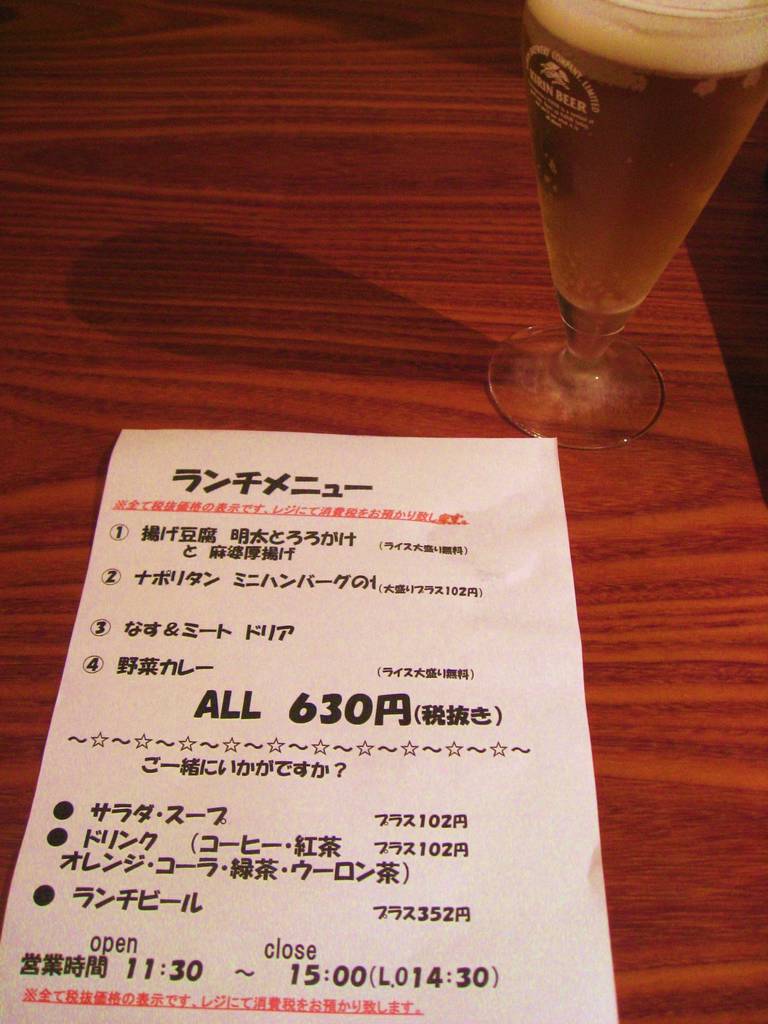 KIRIN BEER
ランチメニュー
※全て税抜価格の表示です、レジにて消費税をお預かり致します。
① 揚げ豆腐 明太とろろがけ
と 麻婆厚揚げ (ライス大盛り無料)
② ナポリタン ミニハンバーグの (大盛りプラス102円)
③ なす&ミート ドリア
④ 野菜カレー (ライス大盛り無料)
ALL 630円(税抜き)
～☆～☆～☆～☆～☆～☆～☆～☆～☆～☆～
ご一緒にいかがですか？
● サラダ・スープ プラス102円
● ドリンク (コーヒー・紅茶 プラス102円
オレンジ・コーラ・緑茶・ウーロン茶)
● ランチビール プラス352円
open close
営業時間 11:30 ～ 15:00(L.O14:30)
※全て税抜価格の表示です、レジにて消費税をお預かり致します。